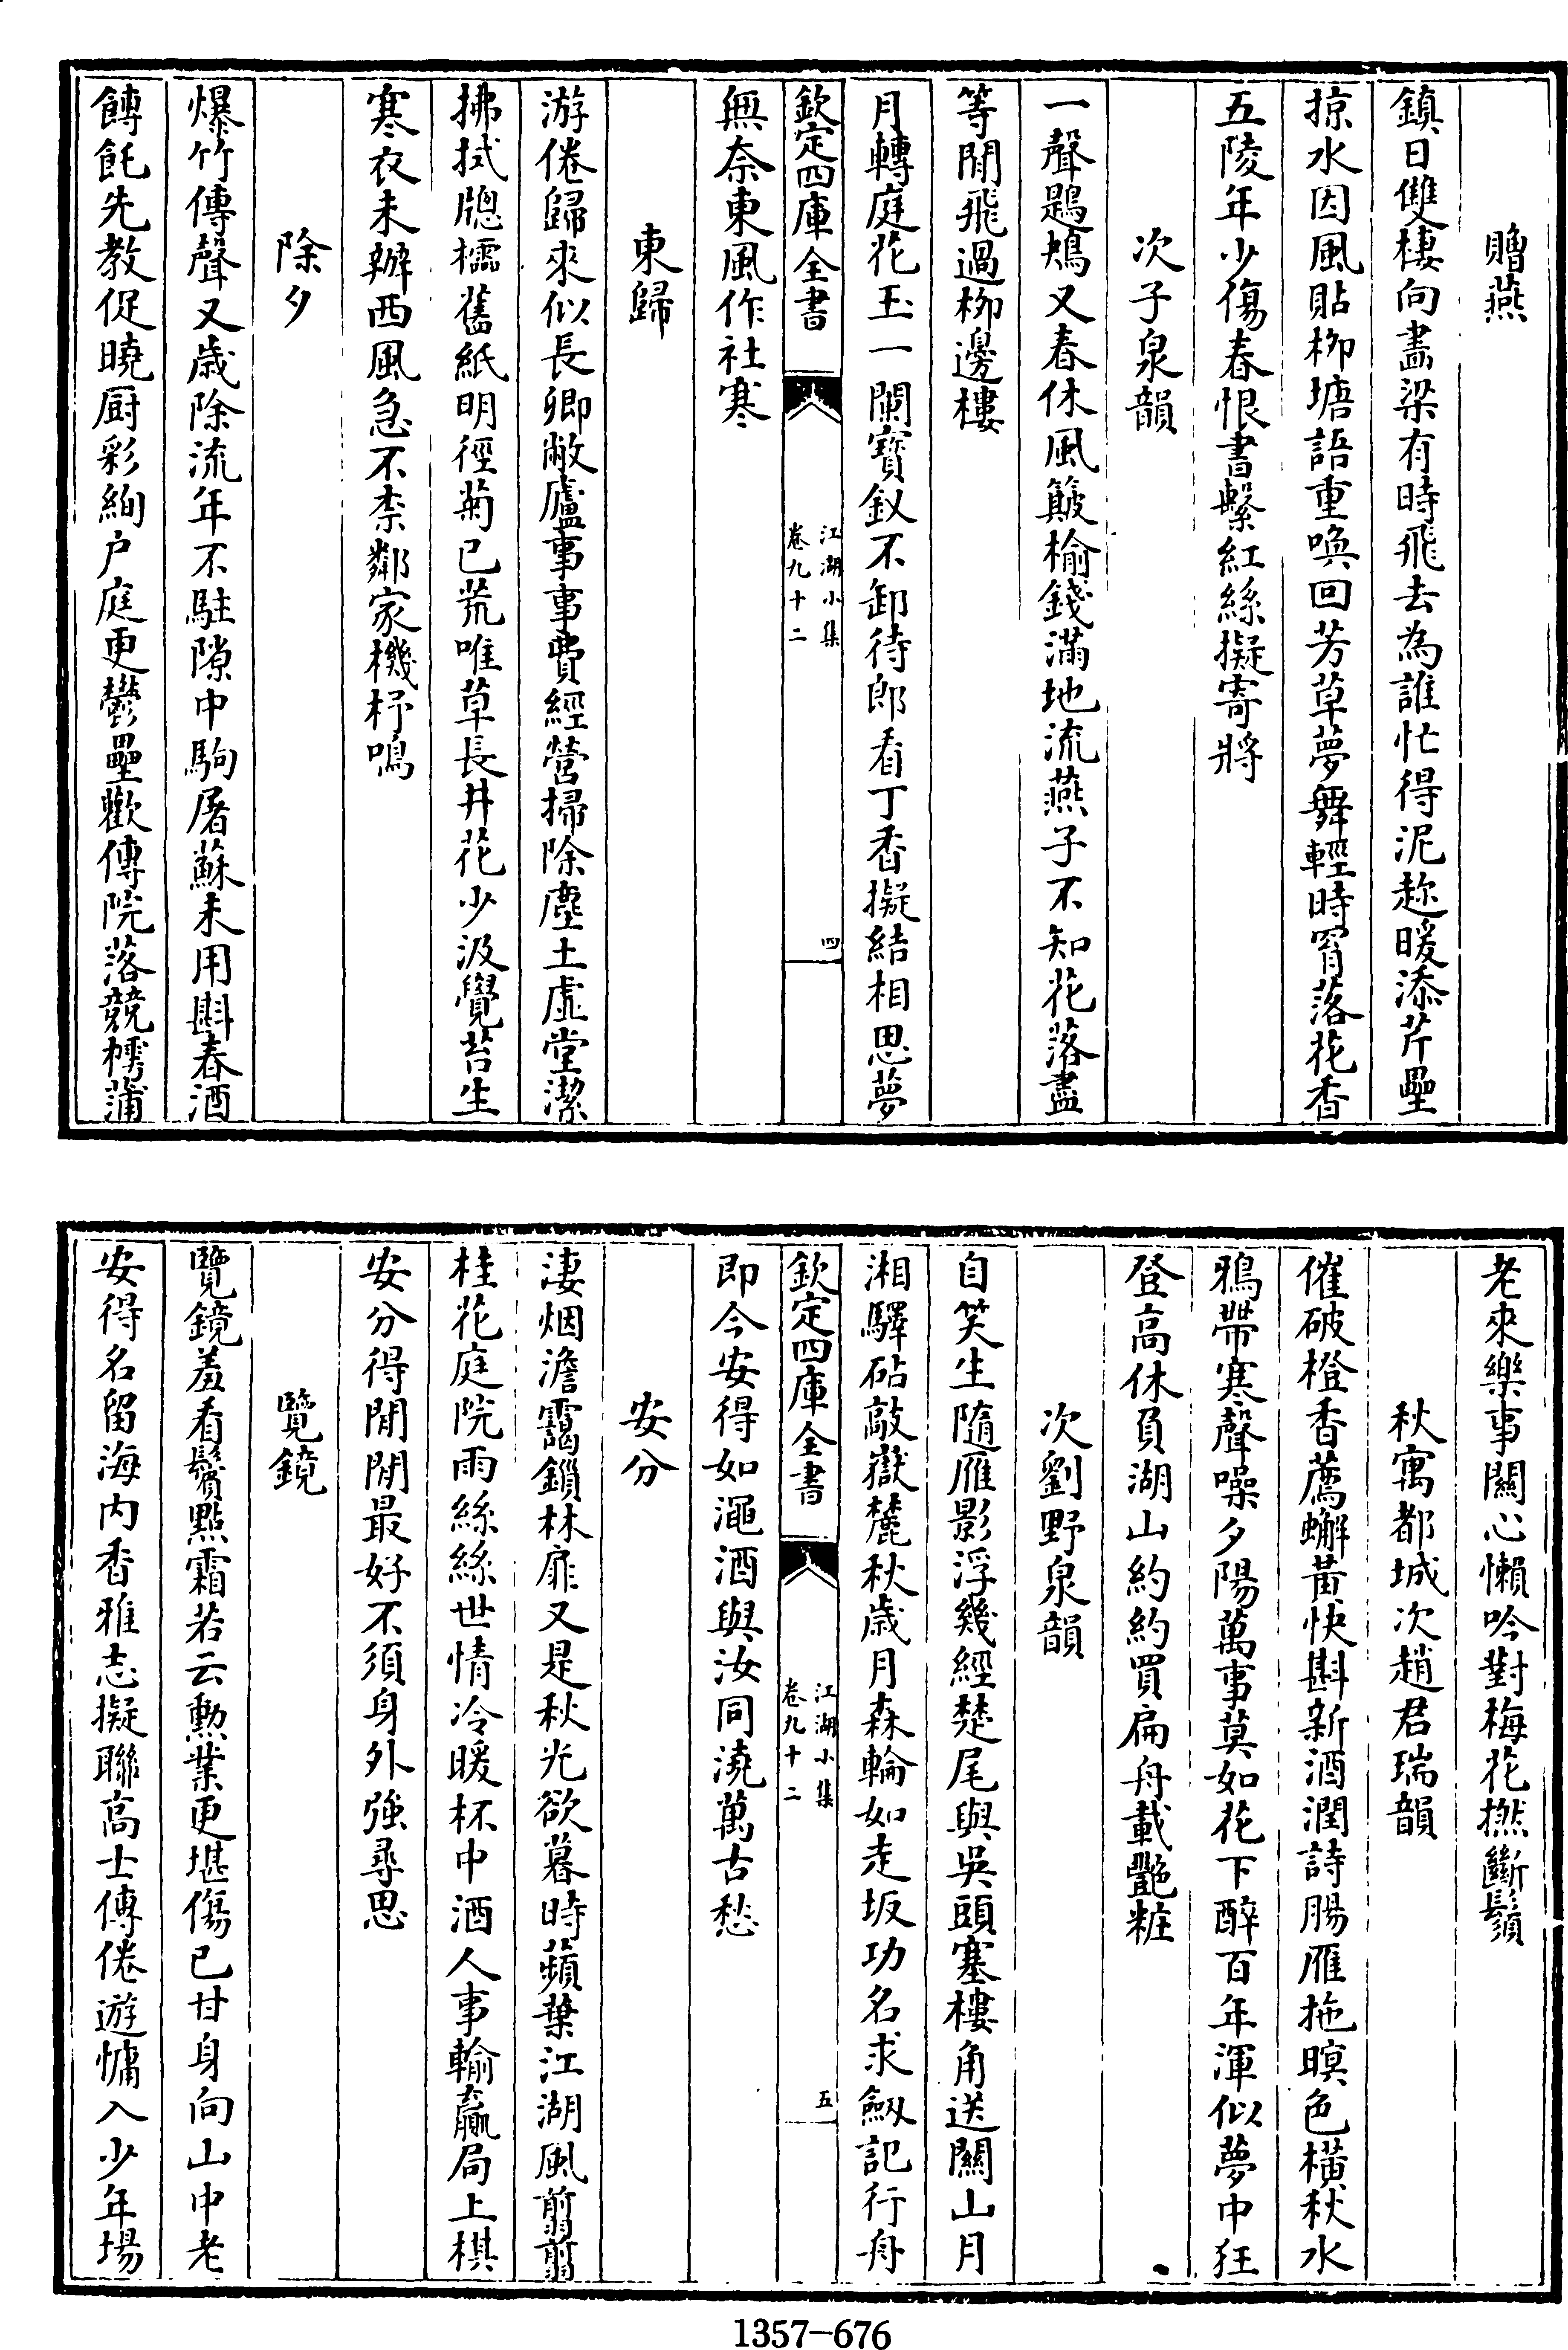 贈燕
鎮日雙棲向畫梁有時飛去為誰忙得泥趂暖添芹壘
掠水因風貼栁塘語重喚回芳草夢舞輕時罥落花香
五陵年少傷春恨書繫紅絲擬寄將
次子泉韻
一聲鶗鴂又春休風簸榆錢滿地流燕子不知花落盡
等閒飛過栁邊樓
月轉庭花玉一闌寶釵不卸待郎看丁香擬結相思夢
欽定四庫全書
江湖小集
卷九十二
四
無奈東風作社寒
東歸
游倦歸來似長卿敝廬事事費經營掃除塵土虛堂潔
拂拭牕櫺舊紙明徑菊已荒唯草長井花少汲覺苔生
寒衣未辦西風急不柰鄰家機杼鳴
除夕
爆竹傳聲又歲除流年不駐隙中駒屠蘇未用斟春酒
餺飥先教促曉厨彩絢户庭更鬱壘歡傳院落競樗蒲
老來樂事關心懶吟對梅花撚斷鬚
秋寓都城次趙君瑞韻
催破橙香薦蠏黃快斟新酒潤詩腸雁拖暝色橫秋水
鴉帶寒聲噪夕陽萬事莫如花下醉百年渾似夢中狂
登高休負湖山約約買扁舟載艷粧
次劉野泉韻
自笑生隨雁影浮幾經楚尾與吳頭塞樓角送關山月
湘驛砧敲嶽麓秋歲月森輪如走坂功名求劔記行舟
欽定四庫全書
江湖小集
卷九十二
五
即今安得如澠酒與汝同澆萬古愁
安分
淒烟澹靄鎖林扉又是秋光欲暮時蘋葉江湖風翦翦
桂花庭院雨絲絲世情冷暖杯中酒人事輸贏局上棋
安分得閒閒最好不須身外強尋思
覽鏡
覽鏡羞看鬢點霜若云勲業更堪傷已甘身向山中老
安得名留海内香雅志擬聯高士傳倦遊慵入少年場
1357-676